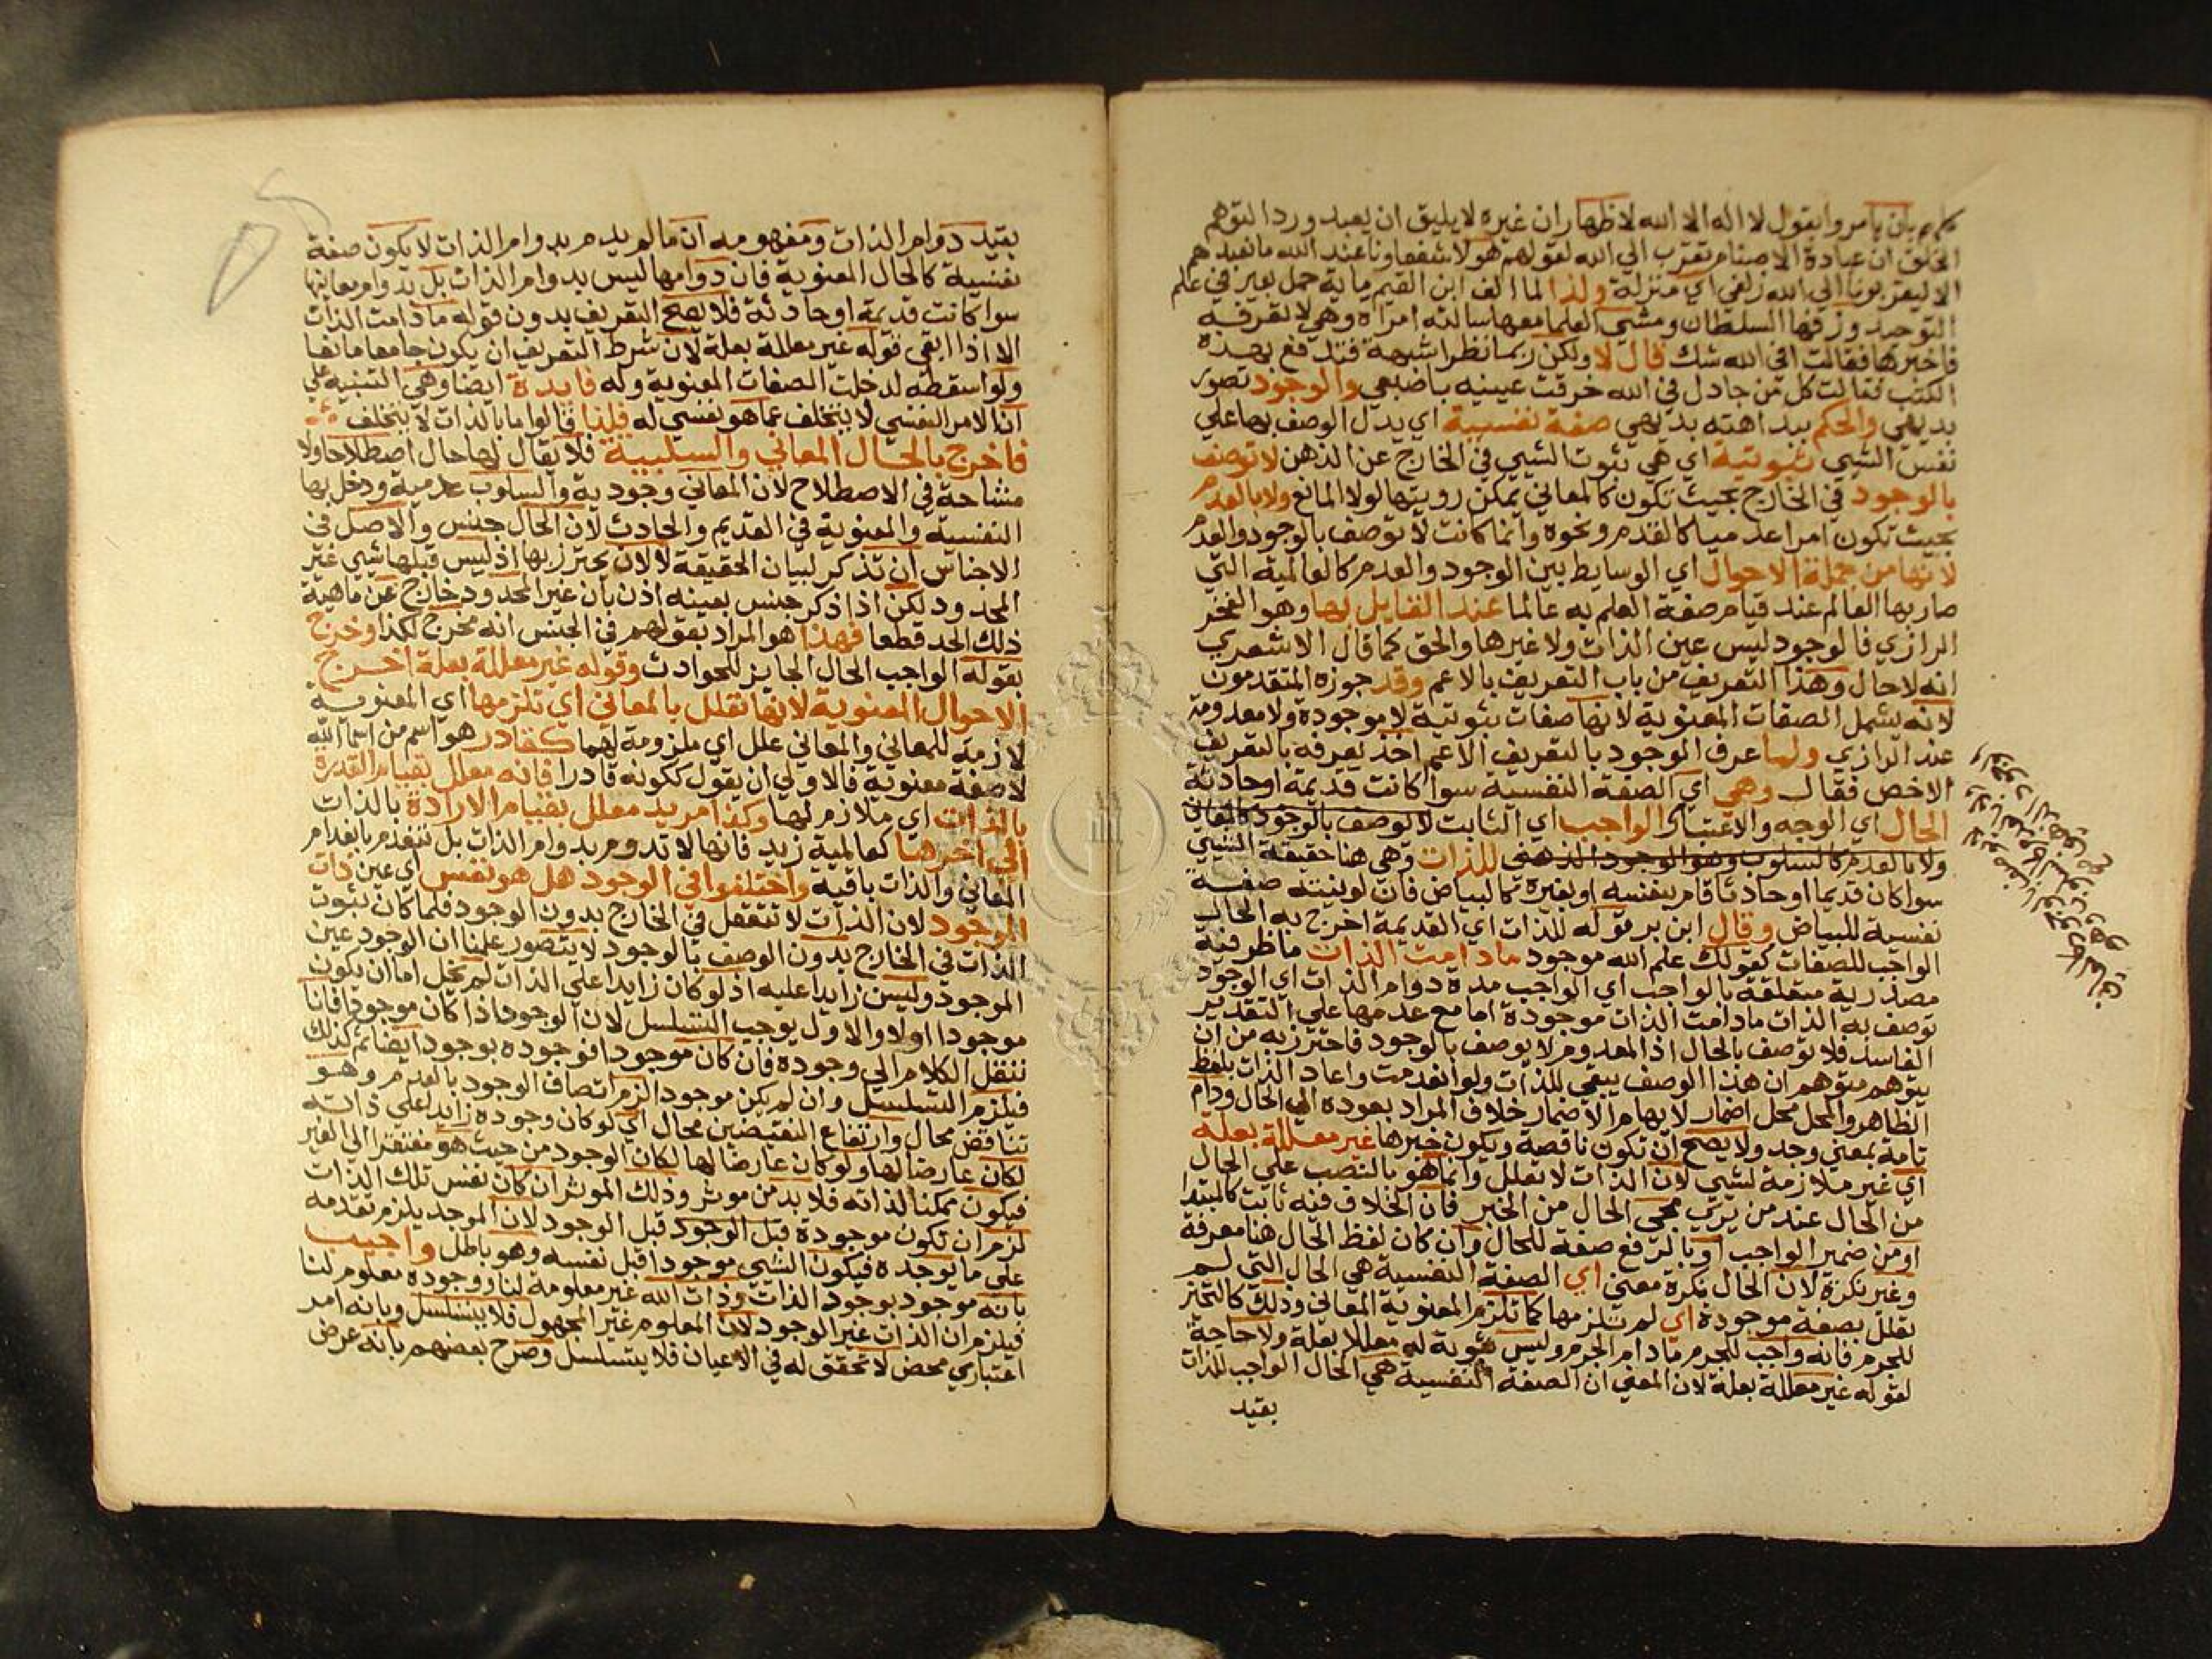 كلهم بان يامروا بقول لا اله الا الله لاظهار ان غيره لا يليق ان يعبد وردا لتوهم
الخلق ان عبادة الاصنام تقرب الي الله لقولهم هولا شفعاونا عند الله ما نعبدهم
الا ليقربونا الي الله زلفي اي منزلة ولذا لما الف ابن القيم ماية حمل بعير في علم
التوحيد وزفها السلطان ومشي العلما معها سالته امراة وهي لا تعرفه
فاخبرها فقالت افي الله شك قال لا ولكن ربما نظرا شبهة فتدفع بهذه
الكتب فقالت كل من جادل في الله خرقت عينيه باضبعي والوجود تصوره
بديهي والحكم ببداهته بديهي صفة نفسية اي يدل الوصف بها علي
نفس الشي ثبوتية اي هي ثبوت الشي في الخارج عن الذهن لا توصف
بالوجود في الخارج بحيث تكون كالمعاني يمكن رويتها لولا المانع ولا بالعدم
بحيث تكون امرا عدميا كالقدم ونحوه وانما كانت لا توصف بالوجود والعدم
لانها من جملة الاحوال اي الوسايط بين الوجود والعدم كالعالمية التي
صار بها العالم عند قيام صفة العلم به عالما عند القايل بها وهو الفخر
الرازي فالوجود ليس عين الذات ولا غيرها والحق كما قال الاشعري
انه لا حال وهذا التعريف من باب التعريف بالاعم وقد جوزه المتقدمون
لانه يشمل الصفات المعنوية لانها صفات ثبوتية لا موجودة ولا معدومة
عند الرازي ولما عرف الوجود بالتعريف الاعم اخذ يعرفه بالتعريف
الاخص فقال وهي اي الصفة النفسية سوا كانت قديمة او حادثة
الحال اي الوجه والاعتبار الواجب اي الثابت لا توصف بالوجود كالمعاني
ولا بالعدم كالسلوب وهو الوجود الذهني للذات وهي هنا حقيقة الشي
سوا كان قديما او حادثا قام بنفسه او بغيره كالبياض فان لونيته صفة
نفسية للبياض وقال ابن بر قوله للذات اي القديمة اخرج به الحال
الواجب للصفات كقولك علم الله موجود ما دامت الذات ما ظرفية
مصدرية متعلقة بالواجب اي الواجب مدة دوام الذات اي الوجود
توصف به الذات ما دامت الذات موجودة اما مع عدمها علي التقدير
الفاسد فلا توصف بالحال اذ المعدوم لا يوصف بالوجود فاحترز به من ان
يتوهم متوهم ان هذا الوصف يبقي للذات ولو انعدمت واعاد الذات بلفظ
الظاهر والمحل محل اضمار لايهام الاضمار خلاف المراد بعوده الي الحال ودام
تامة بمعني وجد ولا يصح ان تكون ناقصة ويكون خبرها غير معللة بعلة
اي غير ملازمة لشي لان الذات لا تعلل وانما هو بالنصب علي الحال
من الحال عند من يري مجي الحال من الخبر فان الخلاف فيه ثابت كالمبتدا
او من ضمير الواجب او بالرفع صفة للحال وان كان لفظ الحال هنا معرفة
وغير نكرة لان الحال نكرة معني اي الصفة النفسية هي الحال التي لم
تعلل بصفة موجودة اي لم تلزمها كما تلزم المعنوية المعاني وذلك كالتحيز
للجرم فانه واجب للجرم ما دام الجرم وليس ثبوته له معللا بعلة ولا حاجة
لقوله غير معللة بعلة لان المعني ان الصفة النفسية هي الحال الواجب للذات
بقيد
بقيد دوام الذات ومفهومه ان ما لم يدم بدوام الذات لا يكون صفة
نفسية كالحال المعنوية فان دوامها ليس بدوام الذات بل بدوام معانيها
سوا كانت قديمة او حادثة فلا يصح التعريف بدون قوله ما دامت الذات
الا اذا ابقي قوله غير معللة بعلة لان شرط التعريف ان يكون جامعا مانعا
ولو اسقطه لدخلت الصفات المعنوية وله فايدة ايضا وهي التنبيه علي
ان الامر النفسي لا يتخلف عما هو نفسي له فلذا قالوا ما بالذات لا يتخلف
فاخرج بالحال المعاني والسلبية فلا يقال لها حال اصطلاحا ولا
مشاحة في الاصطلاح لان المعاني وجودية والسلوب عدمية ودخل بها
النفسية والمعنوية في القديم والحادث لان الحال جنس والاصل في
الاجناس ان تذكر لبيان الحقيقة لا لان يحترز بها اذ ليس قبلها شي غير
المحدود لكن اذا ذكر جنس بعينه اذن بان غير المحدود خارج عن ماهية
ذلك الحد قطعا فهذا هو المراد بقولهم في الجنس انه مخرج لكذا وخرج
بقوله الواجب الحال الجايز للحوادث وقوله غير معللة بعلة اخرج
الاحوال المعنوية لانها تعلل بالمعاني اي تلزمها اي المعنوية
لازمة للمعاني والمعاني علل اي ملزومة لهما كقادر هو اسم من اسما الله
لا صفة معنوية فالاولي ان يقول ككونه قادرا فانه معلل بقيام القدرة
بالذات اي ملازم لها وكذا مريد معلل بقيام الارادة بالذات
الي اخرها كعالمية زيد فانها لا تدوم بدوام الذات بل تنعدم بانعدام
المعاني والذات باقية واختلفوا في الوجود هل هو نفس اي عين ذات
الموجود لان الذات لا تتعقل في الخارج بدون الوجود فلما كان ثبوت
الذات في الخارج بدون الوصف بالوجود لا يتصور علمنا ان الوجود عين
الموجود وليس زايدا عليه اذ لو كان زايدا علي الذات لم يخل اما ان يكون
موجودا اولا والاول يوجب التسلسل لان الوجود اذا كان موجودا فانا
ننقل الكلام الي وجوده فان كان موجودا فوجوده بوجود ايضا ثم كذلك
فيلزم التسلسل وان لم يكن موجودا لزم اتصاف الوجود بالعدم وهو
تناقض محال وارتفاع النقيضين محال اي لو كان وجوده زايدا علي ذاته
لكان عارضا لها ولو كان عارضا لها لكان الوجود من حيث هو مفتقرا الي الغير
فيكون ممكنا لذاته فلا بد من موثر وذلك الموثر ان كان نفس تلك الذات
لزم ان تكون موجودة قبل الوجود قبل الوجود لان الموجد يلزم تقدمه
علي ما يوجده فيكون الشي موجودا قبل نفسه وهو باطل واجيب
بانه موجود بوجود الذات وذات الله غير معلومة لنا ووجوده معلوم لنا
فيلزم ان الذات غير الوجود لان المعلوم غير المجهول فلا يتسلسل وبانه امر
اعتباري محض لا تحقق له في الاعيان فلا يتسلسل وصرح بعضهم بانه عرض